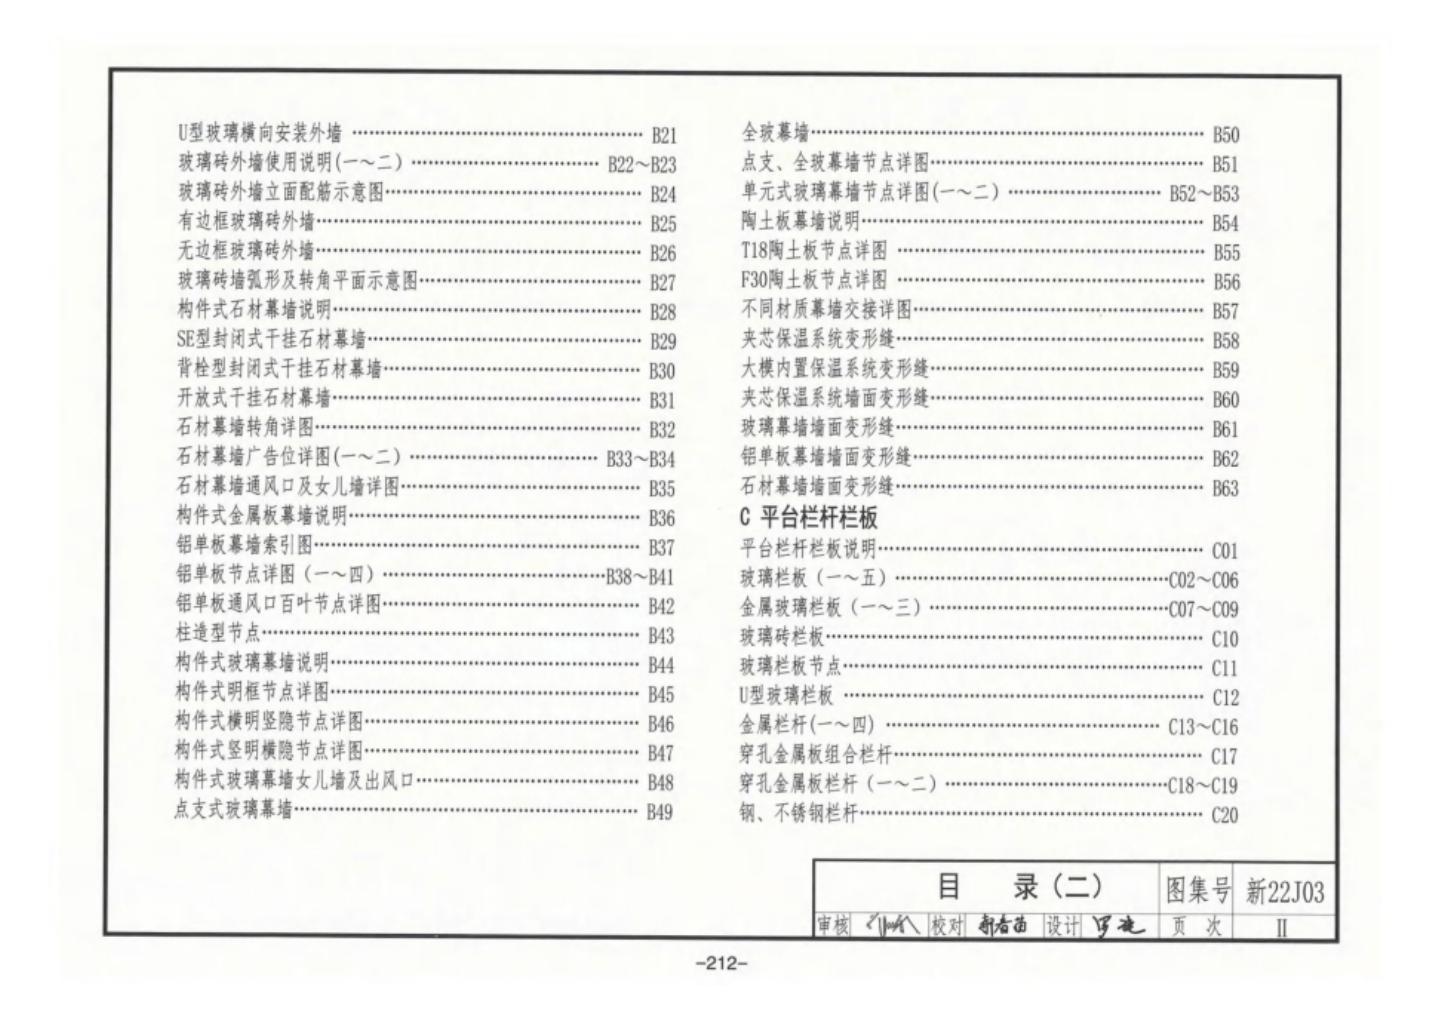 U型玻璃横向安装外墙 ………… B21
玻璃砖外墙使用说明(一～二) ………… B22～B23
玻璃砖外墙立面配筋示意图………… B24
有边框玻璃砖外墙………… B25
无边框玻璃砖外墙………… B26
玻璃砖墙弧形及转角平面示意图………… B27
构件式石材幕墙说明………… B28
SE型封闭式干挂石材幕墙………… B29
背栓型封闭式干挂石材幕墙………… B30
开放式干挂石材幕墙………… B31
石材幕墙转角详图………… B32
石材幕墙广告位详图(一～二) ………… B33～B34
石材幕墙通风口及女儿墙详图………… B35
构件式金属板幕墙说明………… B36
铝单板幕墙索引图………… B37
铝单板节点详图（一～四）…………B38～B41
铝单板通风口百叶节点详图………… B42
柱造型节点………… B43
构件式玻璃幕墙说明………… B44
构件式明框节点详图………… B45
构件式横明竖隐节点详图………… B46
构件式竖明横隐节点详图………… B47
构件式玻璃幕墙女儿墙及出风口………… B48
点支式玻璃幕墙………… B49
全玻幕墙………… B50
点支、全玻幕墙节点详图………… B51
单元式玻璃幕墙节点详图(一～二) ………… B52～B53
陶土板幕墙说明………… B54
T18陶土板节点详图 ………… B55
F30陶土板节点详图 ………… B56
不同材质幕墙交接详图………… B57
夹芯保温系统变形缝………… B58
大模内置保温系统变形缝………… B59
夹芯保温系统墙面变形缝………… B60
玻璃幕墙墙面变形缝………… B61
铝单板幕墙墙面变形缝………… B62
石材幕墙墙面变形缝………… B63
C 平台栏杆栏板
平台栏杆栏板说明………… C01
玻璃栏板（一～五）…………C02～C06
金属玻璃栏板（一～三）…………C07～C09
玻璃砖栏板………… C10
玻璃栏板节点………… C11
U型玻璃栏板 ………… C12
金属栏杆(一～四) ………… C13～C16
穿孔金属板组合栏杆………… C17
穿孔金属板栏杆（一～二）…………C18～C19
钢、不锈钢栏杆………… C20
目 录（二） 图集号 新22J03
审核 校对 设计 页 次 Ⅱ
-212-